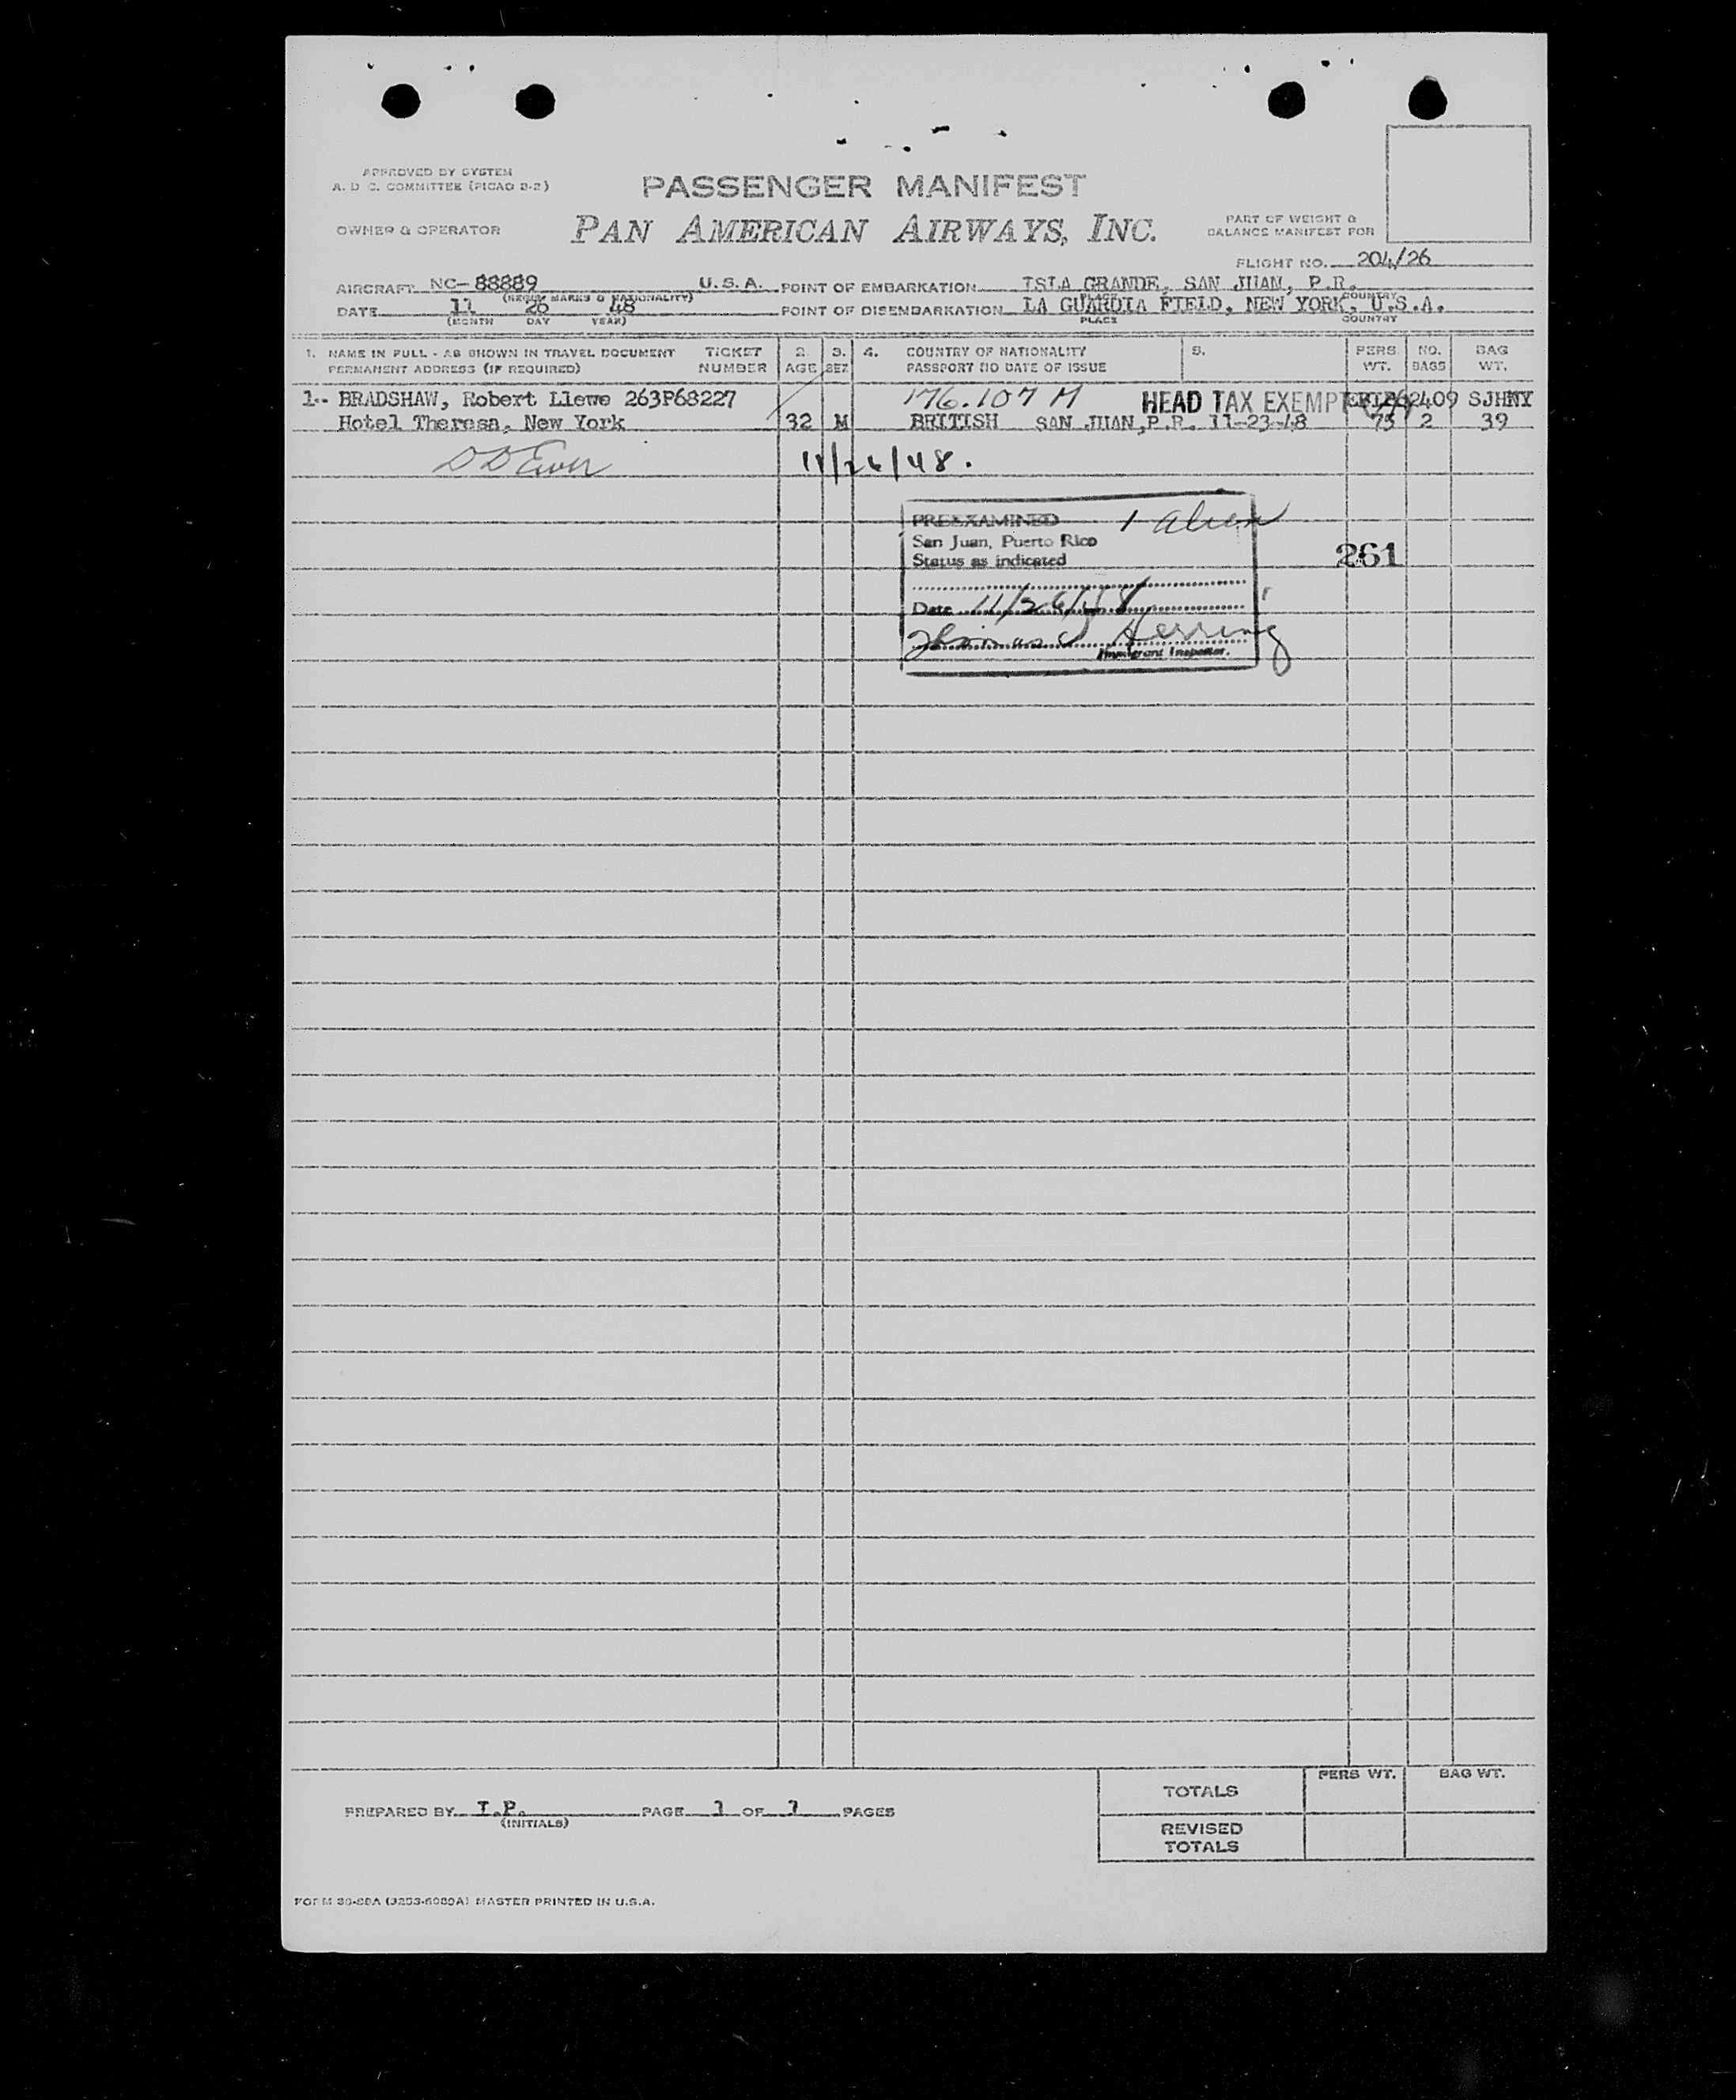 APPROVED BY SYSTEM
A. D C. COMMITTEE (PICAO B-2)
PASSENGER MANIFEST
OWNER & OPERATOR
PAN AMERICAN AIRWAYS, INC.
PART OF WEIGHT &
BALANCE MANIFEST FOR
FLIGHT NO. 204/26
AIRCRAFT NC-88889 U.S.A. POINT OF EMBARKATION ISLA GRANDE, SAN JUAN, P.R.
(REGIS MARKS & NATIONALITY) PLACE COUNTRY
DATE 11 26 48 POINT OF DISEMBARKATION LA GUARDIA FIELD, NEW YORK, U.S.A.
(MONTH DAY YEAR) PLACE COUNTRY
1. NAME IN FULL - AS SHOWN IN TRAVEL DOCUMENT TICKET 2. 3. 4. COUNTRY OF NATIONALITY 5. PERS NO. BAG
PERMANENT ADDRESS (IF REQUIRED) NUMBER AGE SEX PASSPORT NO DATE OF ISSUE WT. BAGS WT.
1- BRADSHAW, Robert Llewe 263P68227 176.107 M HEAD TAX EXEMPT 2409 SJHNY
Hotel Theresa, New York 32 M BRITISH SAN JUAN, P.R. 11-23-48 75 2 39
11/26/48.
PREEXAMINED 1 alien
San Juan, Puerto Rico
Status as indicated
261
Date 11/26/48
Thomas Herring
Immigrant Inspector.
TOTALS PERS WT. BAG WT.
PREPARED BY I.P. PAGE 1 OF 1 PAGES
(INITIALS)
REVISED
TOTALS
MASTER PRINTED IN U.S.A.